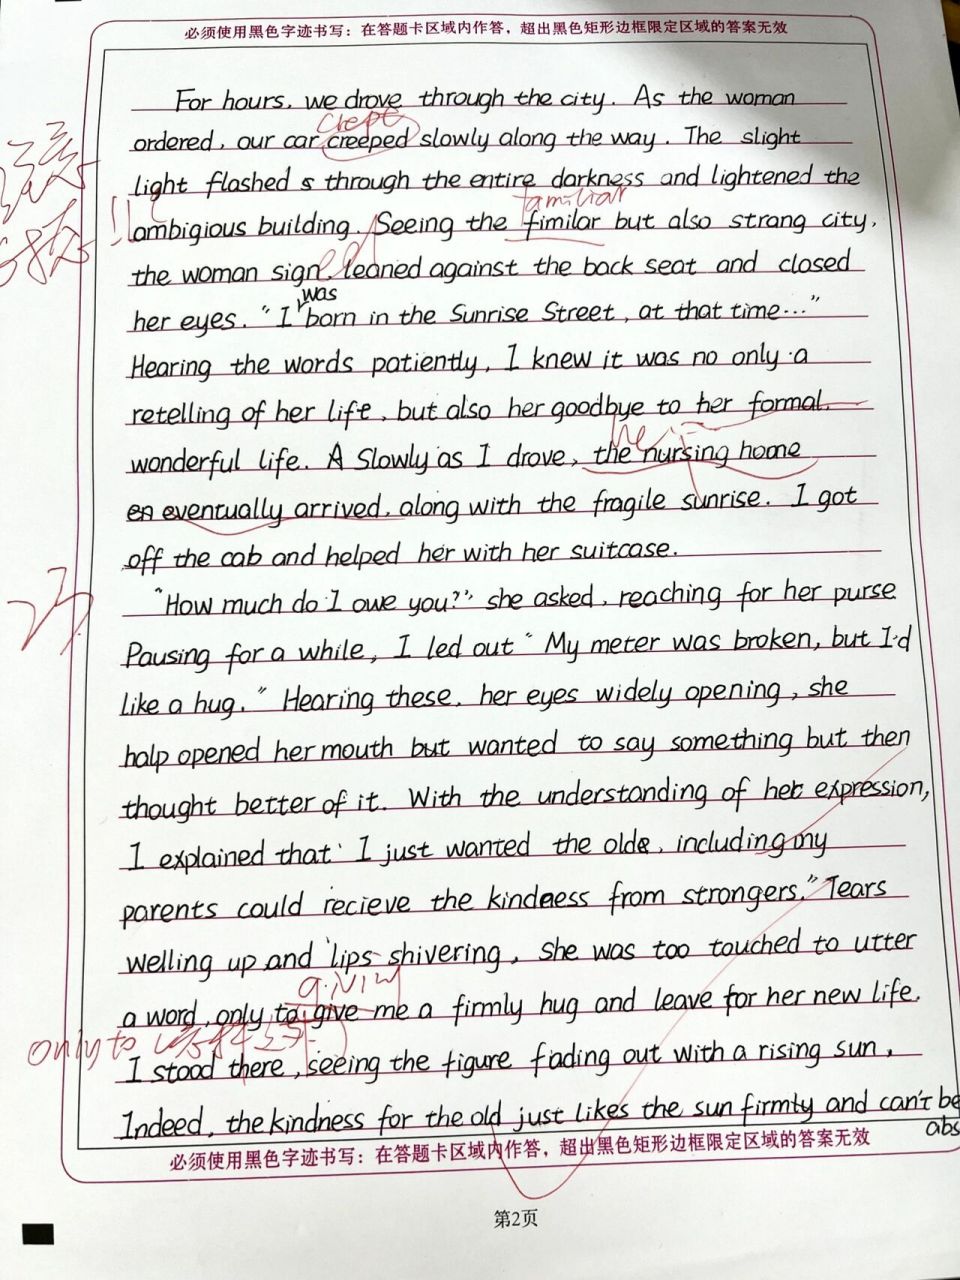 必须使用黑色字迹书写：在答题卡区域内作答，超出黑色矩形边框限定区域的答案无效
For hours, we drove through the city. As the woman
crept
ordered, our car creeped slowly along the way. The slight
light flashed s through the entire darkness and lightened the
familiar
ambigious building. Seeing the fimilar but also strang city,
ed
the woman sign, leaned against the back seat and closed
was
her eyes. "I born in the Sunrise Street, at that time..."
Hearing the words patiently, I knew it was no only a
retelling of her life, but also her goodbye to her formal,
wonderful life. A Slowly as I drove, the nursing home
en eventually arrived, along with the fragile sunrise. I got
off the cab and helped her with her suitcase.
"How much do I owe you?" she asked, reaching for her purse
Pausing for a while, I led out " My meter was broken, but I'd
like a hug." Hearing these, her eyes widely opening, she
halp opened her mouth but wanted to say something but then
thought better of it. With the understanding of her expression,
I explained that I just wanted the olde, including my
parents could recieve the kindness from strongers." Tears
welling up and lips shivering, she was too touched to utter
giving
a word, only to give me a firmly hug and leave for her new life.
only to
I stood there, seeing the figure fading out with a rising sun,
Indeed, the kindness for the old just likes the sun firmty and can't be
abs
必须使用黑色字迹书写：在答题卡区域内作答，超出黑色矩形边框限定区域的答案无效
第2页